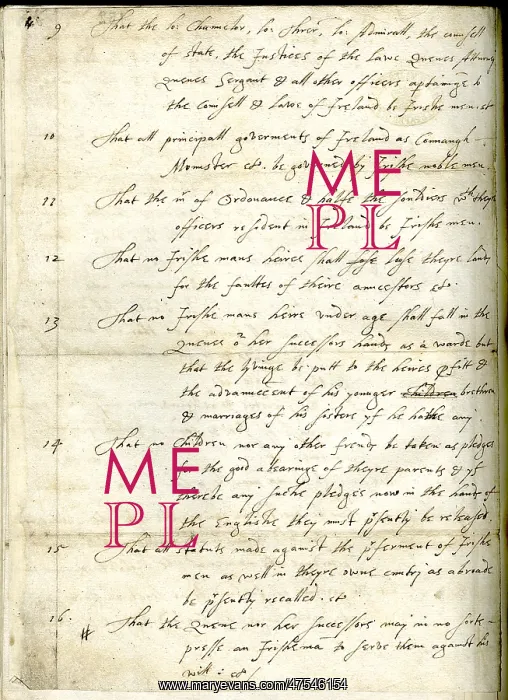 9 That the lo: Chancelor, lo: Threr, lo: Admirall, the counsell
of state, the Justices of the lawe Quenes Atturny
Quenes Sergant & all other officers aptaining to
the counsell & lawe of Ireland be Irishe men. et
10 That all principall goverments of Ireland as Connaugh
Mounster et. be governed by Irishe noble men.
11 That the mr of Ordonance & halfe the soudiers wth theyr
officers resident in Ireland be Irishe men.
12 That no Irishe mans heires shall lose theyre landes
for the faultes of theire auncestors et.
13 That no Irishe mans heire under age shall fall in the
Quenes or her successors handes as a warde but
that the lyvinge be putt to the heires profitt &
the advauncement of his younger children brethren
& marriages of his sisters yf he hathe any
14 That no children nor any other frendes be taken as pledges
for the good abearinge of theyre parents & yf
therebe any suche pledges now in the handes of
the Englishe they must presently be released.
15 That all statuts made against the preferment of Irishe
men as well in theyre owne cuntry as abroade
be presently recalled. et
16. That the Quene nor her successors may in no sorte
presse an Irisheman to serve them against his
will: et
ME
PL
ME
PL
www.maryevans.com/47546154